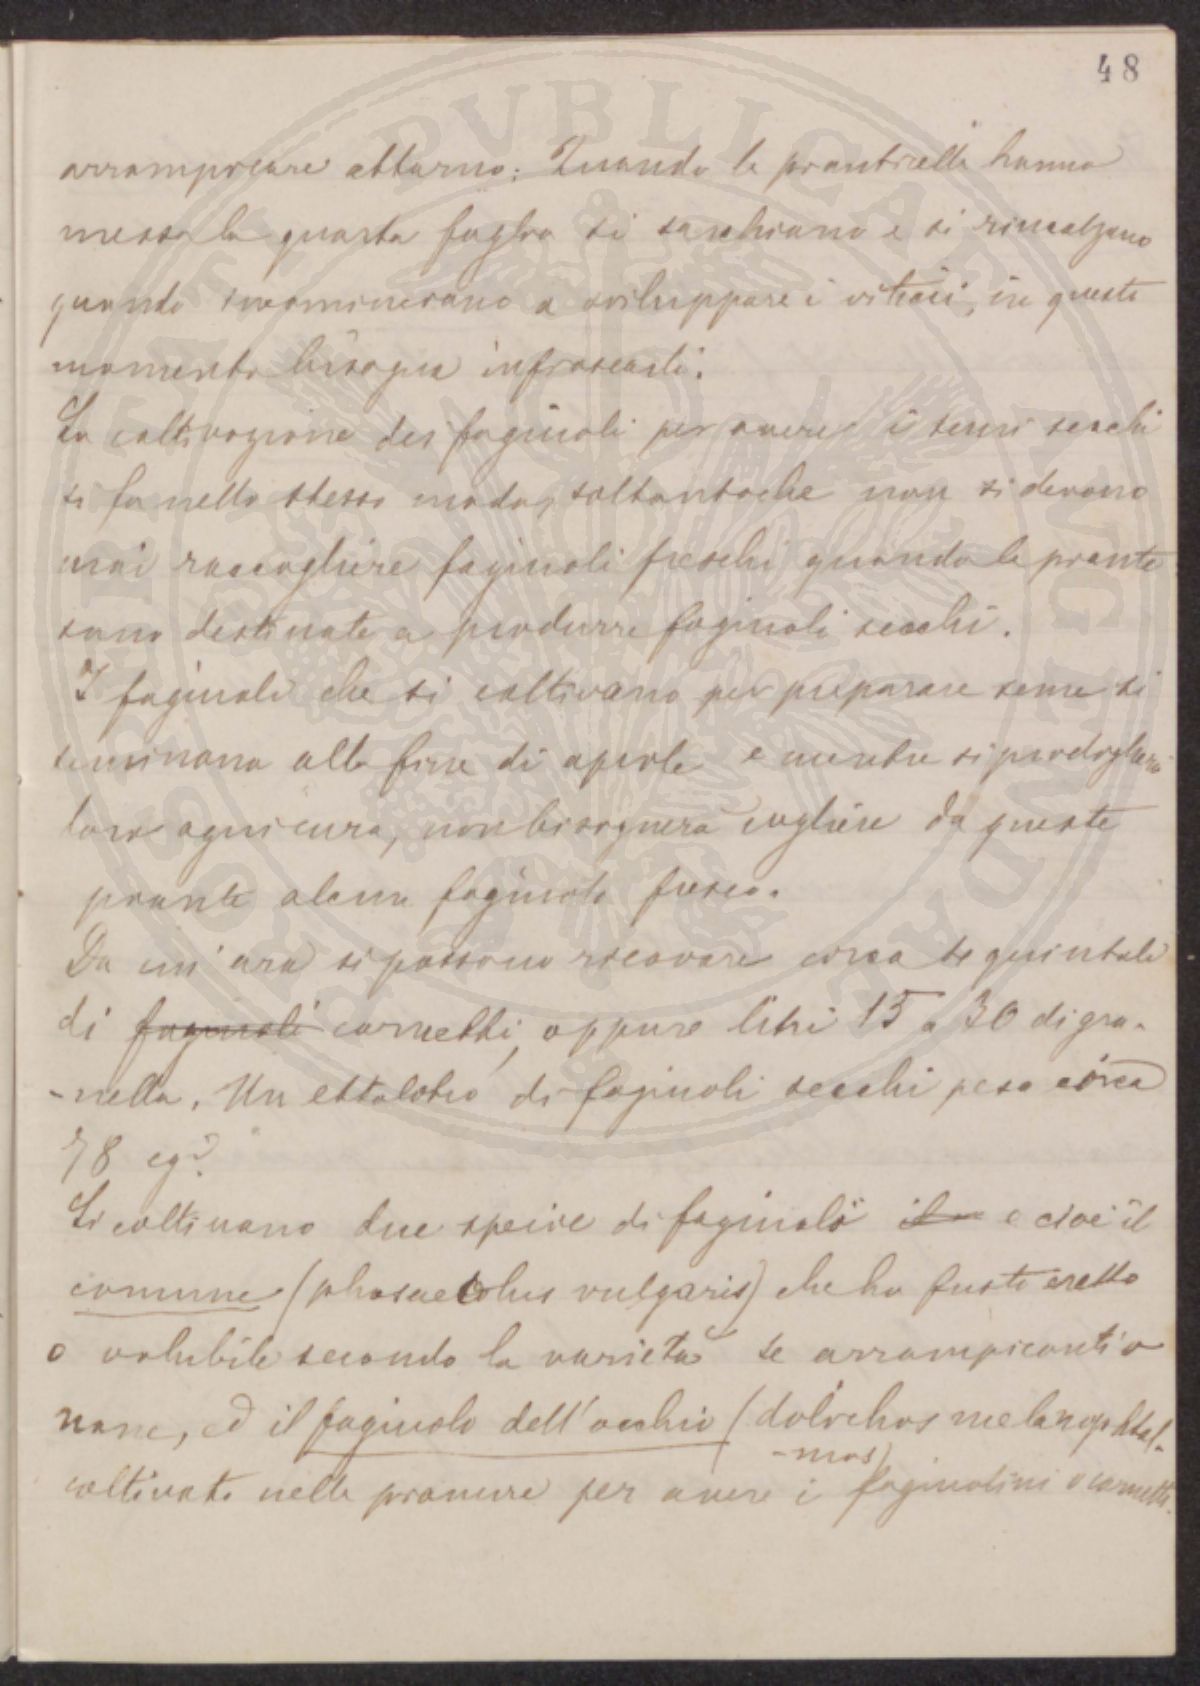 48
arrampicare attorno. Quando le pianticelle hanno
messo la quarta foglia si sarchiano e si rincalzano
quando incominciano a sviluppare i viticci, in questo
momento bisogna infrascarli.
La coltivazione dei fagiuoli per avere i semi secchi
si fa nello stesso modo, soltantoche non si devono
mai raccogliere fagiuoli freschi quando le piante
sono destinate a produrre fagiuoli secchi.
I fagiuoli che si coltivano per preparare seme si
seminano alla fine di aprile e mentre si prodigherà
loro ogni cura, non bisognerà cogliere da queste
piante alcun fagiuolo fresco.
Da un'ara si possono ricavare circa quintali
di fagiuoli cornetti, oppure litri 15 a 30 di gra-
-nella. Un ettolitro di fagiuoli secchi pesa circa
78 cgi.
Si coltivano due specie di fagiuoli il e cioè il
comune (phosaeolus vulgaris) che ha fusto eretto
o volubile secondo la varietà se arrampicanti o
nane, ed il fagiuolo dell'occhio (dolichos melanophtal-
-mos)
coltivato nelle pianure per avere i fagiuolini o cornetti.
PUBLICAE AMICI MUNDA